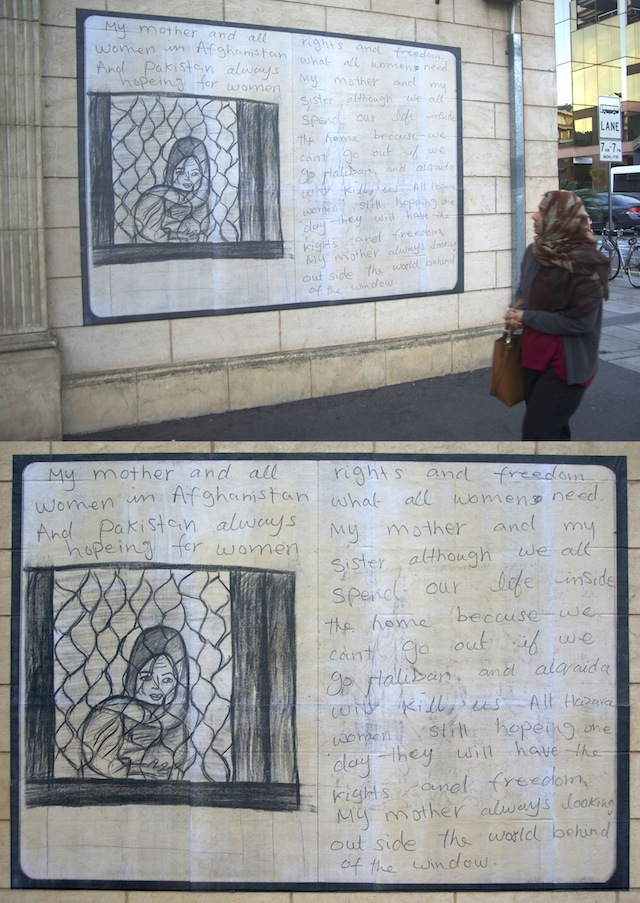 My mother and all
women in Afghanistan
And Pakistain always
hopeing for women
rights and freedom
what all womens need
My mother and my
sister although we all
spend our life inside
the home because we
cant go out if we
go Haliban and alqaida
will kill us All Hazara
women still hopeing one
day they will have the
rights and freedom
My mother always looking
out side the world behind
of the window
LANE
7 AM - 7 PM
MON-FRI
My mother and all
women in Afghanistan
And Pakistain always
hopeing for women
rights and freedom
what all womens need.
My mother and my
sister although we all
spend our life inside
the home because we
cant go out if we
go Haliban and alqaida
will kill us All Hazara
women still hopeing one
day they will have the
rights and freedom,
My mother always looking
out side the world behind
of the window.